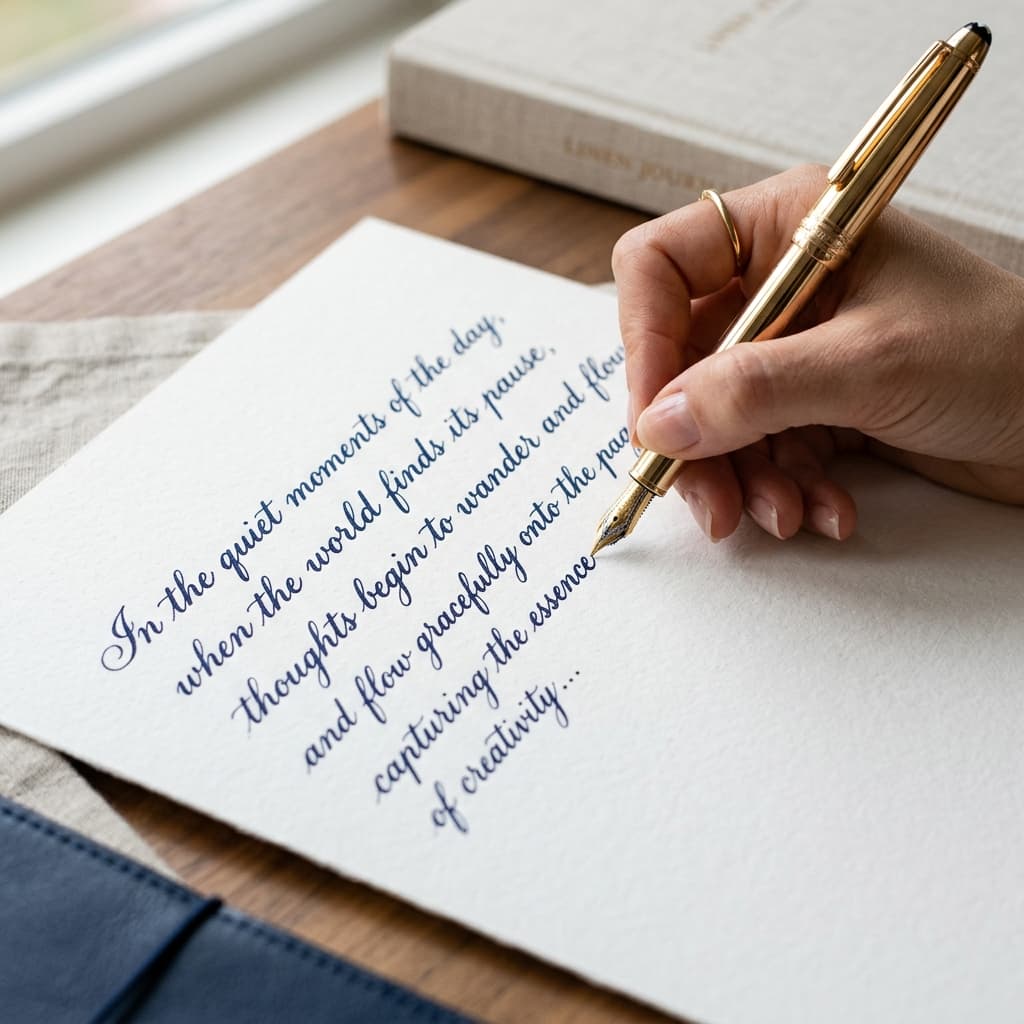 In the quiet moments of the day,
when the world finds its pause,
thoughts begin to wander and flow
and flow gracefully onto the pag
capturing the essence
of creativity...
LINEN JOURN